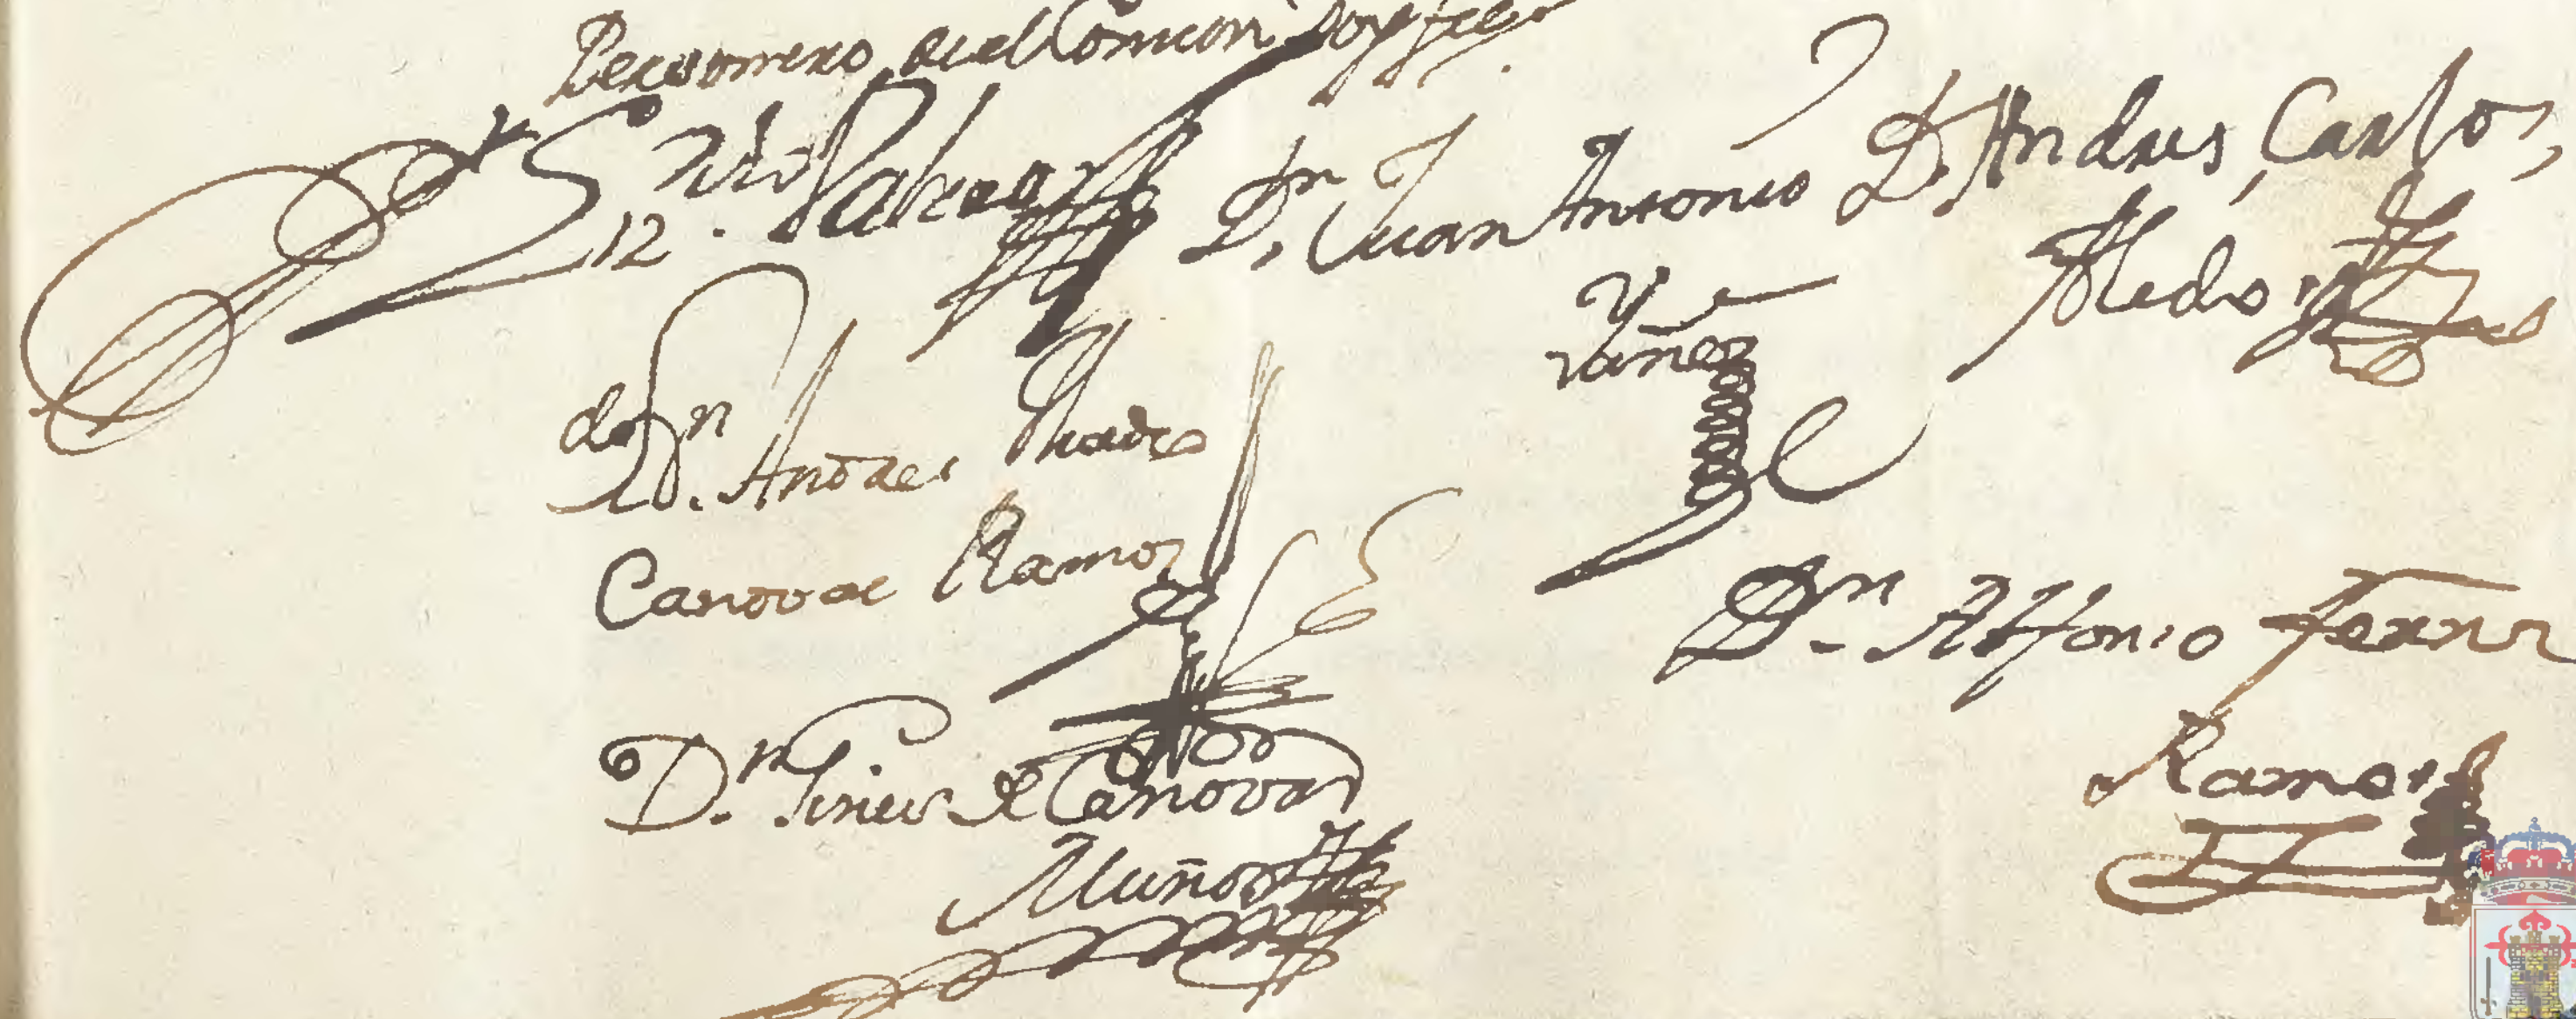 Personero del Comun doy fee
D.n Juan Antonio
Yañez
D. Andres Carlos
Aledo
D.n Andres
Canovas Ramos
D.n Alfonso Fern
Ramos
D.n Gines de Canovas
Muñoz